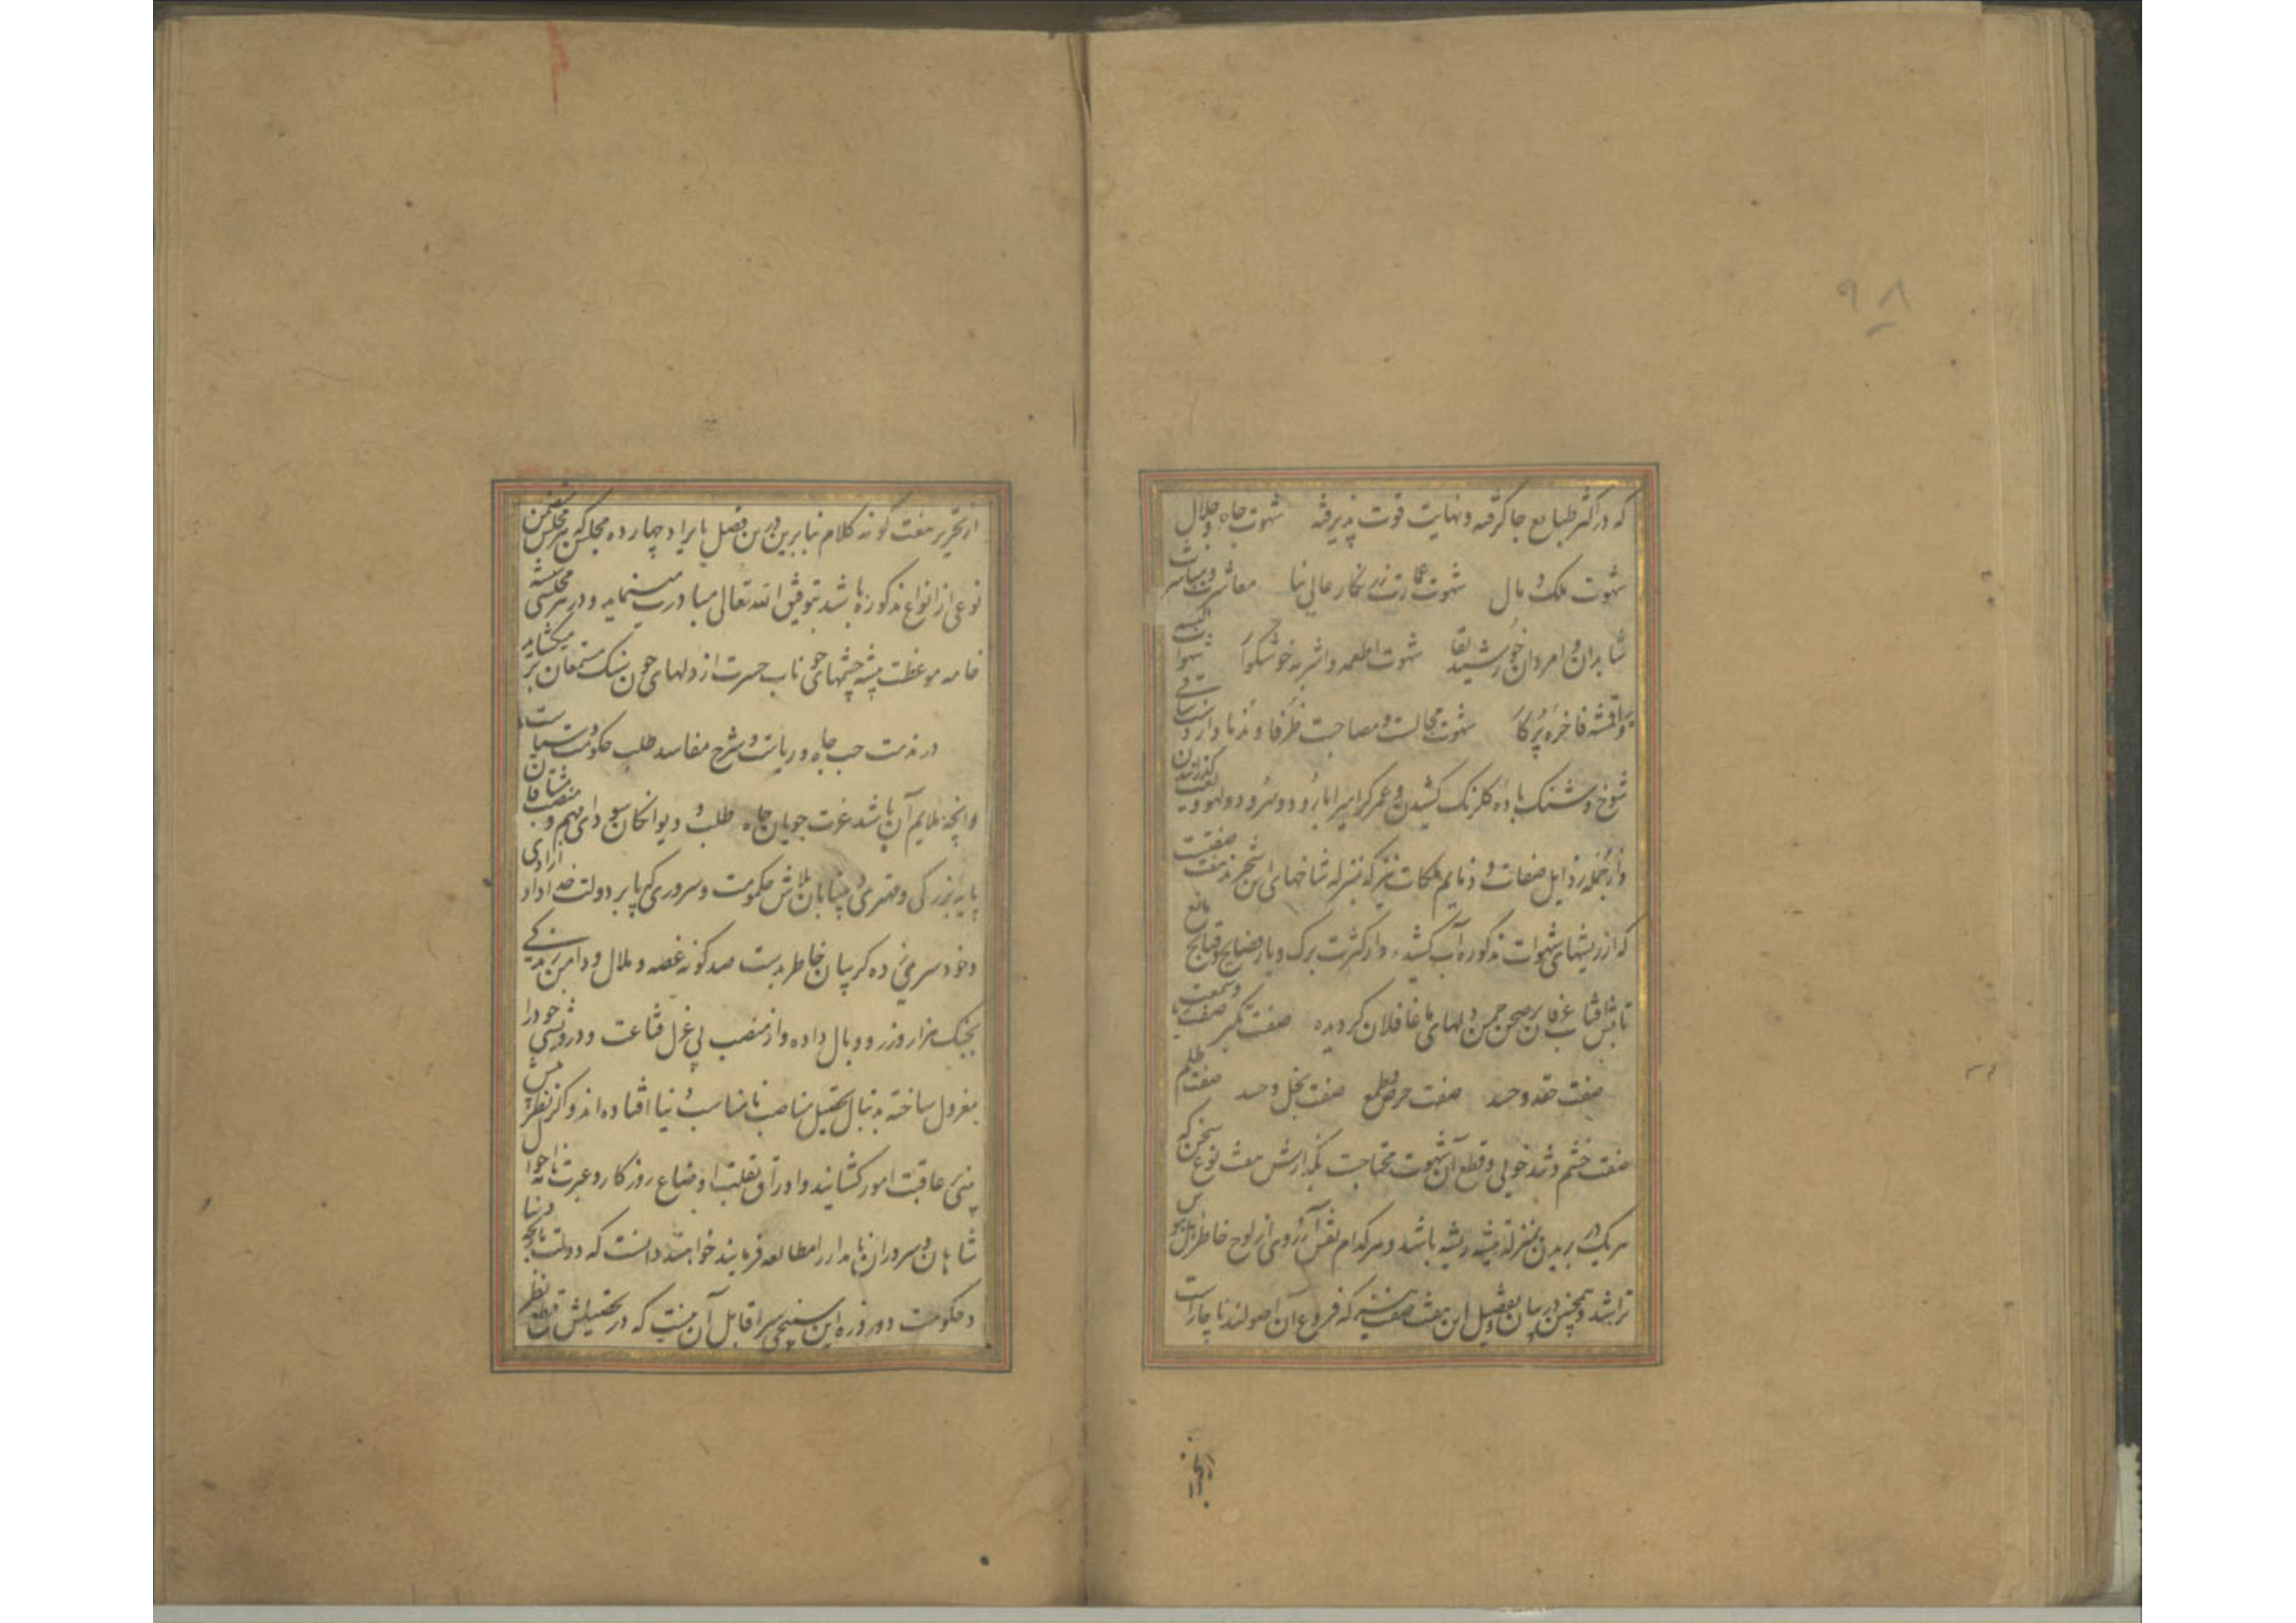 ۹۸
که در اکثر طبایع جا گرفته و نهایت قوت پذیرفته شهوت جاه و جلال
شهوت ملک و مال شهوت عمارت زرنگار عالی بنا معاشرت و مباشرت
شاهدان و امردان خورشید لقا شهوت اطعمه و اشربه خوشگوار شهوت البسه
و اقمشه فاخره پرکار شهوت مجالست و مصاحبت ظرفا و ندما و از دست ساقی
شوخ و شنک باده گلرنک کشیدن و عمر گرامی را با رود و سرود و لهو و لعب گذرانیدن
و از جمله رذایل صفات و ذمایم ملکات نیز که بمنزله شاخهای این شجرند هفت صفتست
که از ریشهای شهوات مذکوره آب کشیده و از کثرت برک و بار فضایح و قبایح مانع
تابش آفتاب عرفان بر صحن چمن دلهای ما غافلان گردیده صفت تکبر صفت ریا و سمعت
صفت حقد و حسد صفت حرص و طمع صفت بخل و حسد صفت ظلم
صفت خشم و تندخویی و قطع آن شهوت محتاجست بگذارش هفت نوع سخن که
هر یک در بریدن بمنزله تیشه ریشه باشد و هر کدام نقش آرزوی از لوح خاطر اهل هوس
تراشد و همچنین در بیان تفصیل این هفت صفت نیز که فروع آن اصولند ناچار است
از تحریر هفت گونه کلام بنا برین درین فصل بایراد چهارده مجلس که هر مجلس متضمن
نوعی از انواع مذکوره باشد بتوفیق الله تعالی مبادرت مینماید و در هر مجلسی بتیشه
خامه موعظت پیشه چشمهای خوناب حسرت از دلهای چون سنک مستمعان بر میگشاید
در مذمت حب جاه و ریاست و شرح مفاسد طلب حکومت و سیاست
و آنچه ملایم آن باشد عزت جویان جاه طلب و دیوانگان سودای مهم و منصب مشتاقان
پایه بزرگی و مهتری و بیتابان تلاش حکومت و سروری که پا بر دولت خداداد آزادی
و خود سری زده گریبان خاطر بدست صد گونه غصه و ملال و دامن زندگی
بچنک هزار وزر و وبال داده و از منصب بی عزل قناعت و درویشی خود را
معزول ساخته بدنبال تحصیل مناصب نامناسب دنیا افتاده اند و اگر نظر پیش
بینی عاقبت امور گشایند و اوراق تقلبات اوضاع روزگار و عبرت نامه احوال
شاهان و سروران نامدار را مطالعه فرمایند خواهند دانست که دولت نایجه دنیا
و حکومت دو روزه این سپنجی سرا قابل آن نیست که در تحصیلش قطع نظر